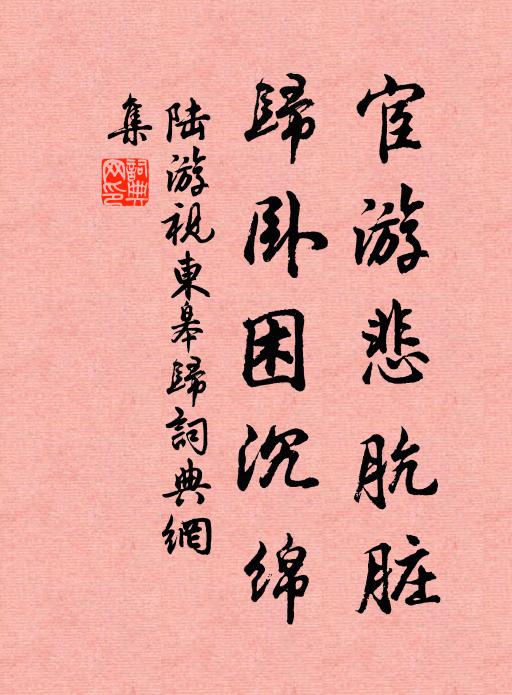 宦游悲肮脏
歸卧困沉绵
陆游視東皋歸詞典網
集
詞典网印